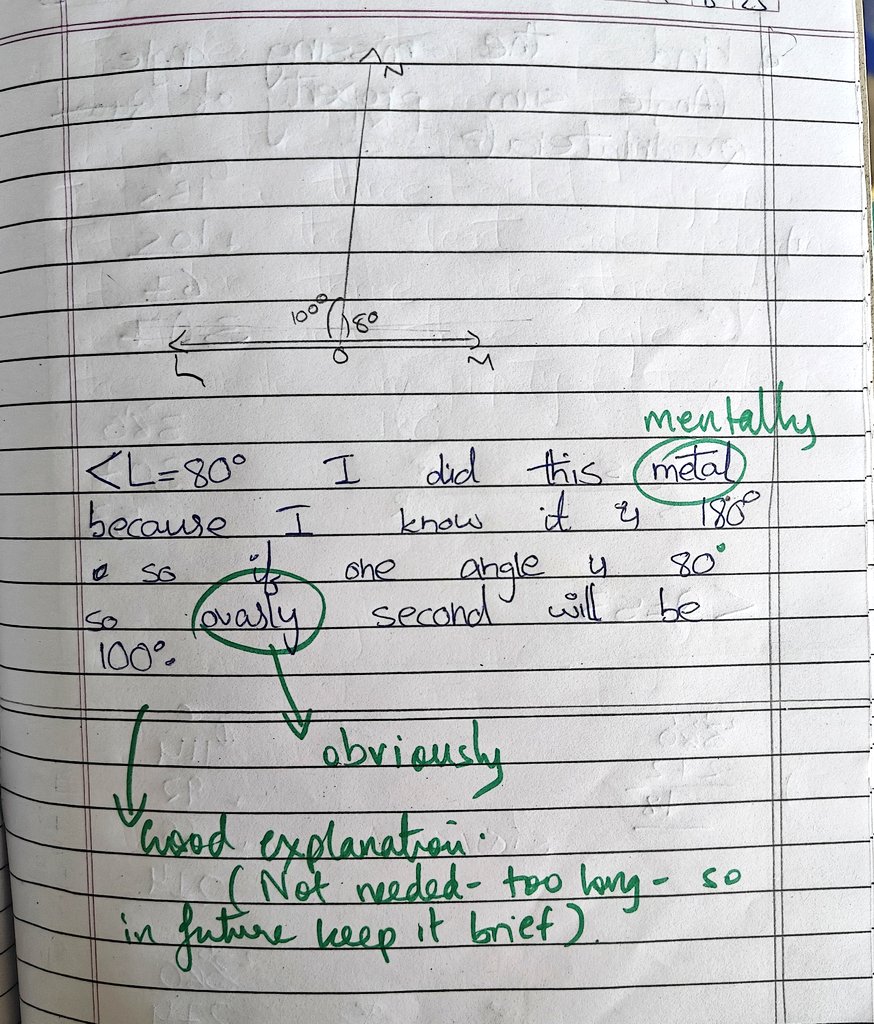 N
100°
80
L
O
M
mentally
<L=80° I did this metal
because I know it is 180°
so if one angle is 80°
so ovasly second will be
100°.
obviously
Good explanation.
(Not needed- too long - so
in future keep it brief).